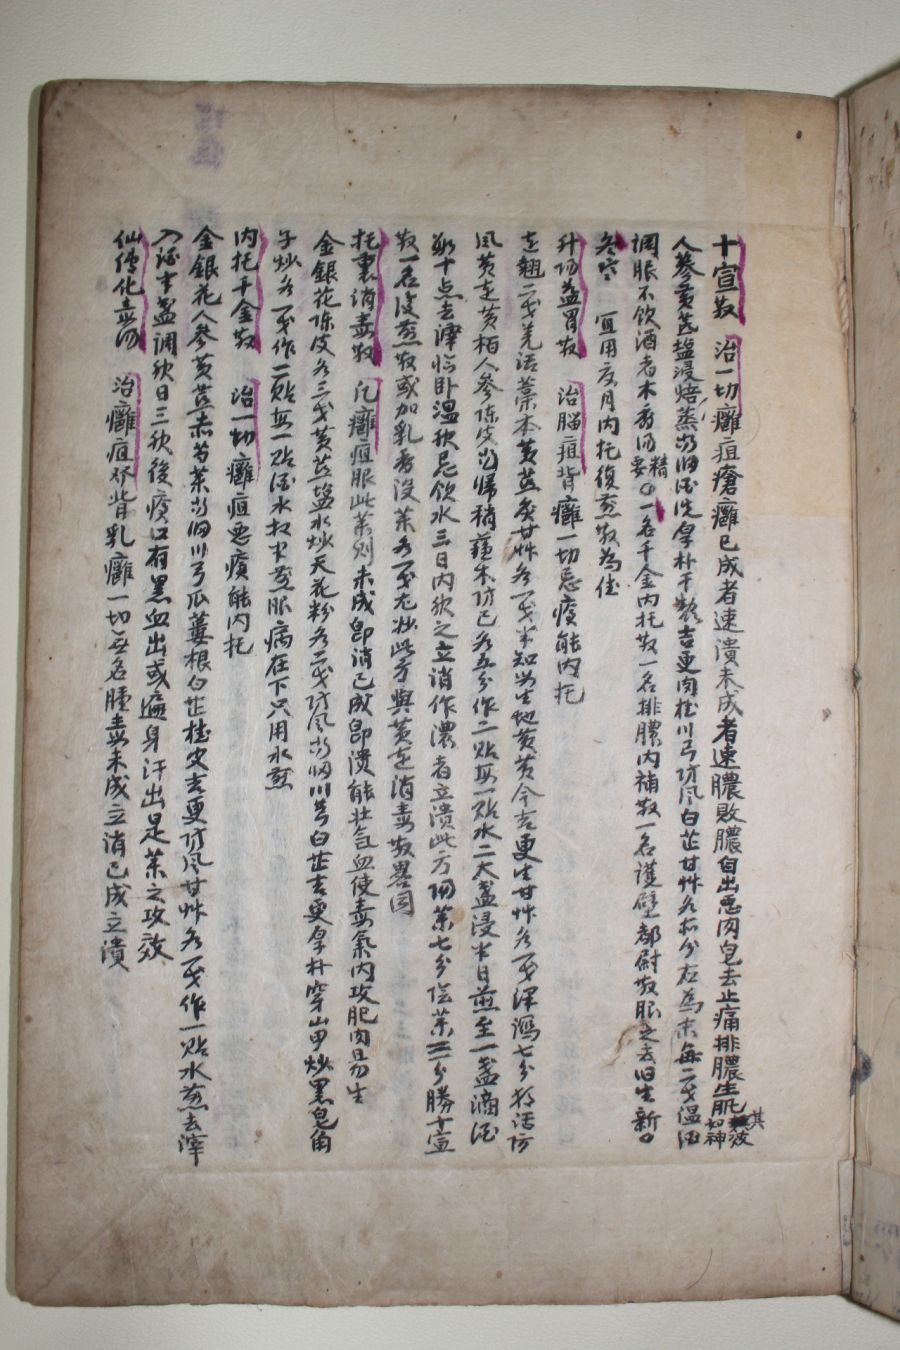 十宣散 治一切癰疽瘡癰已成者速潰未成者速膿敗膿自出惡肉自去止痛排膿生肌其效如神
人參黃芪塩浸焙蒸當归酒洗厚朴干製吉更肉桂川弓防风白芷甘艸各 分右為末每二戔温酒
調服不飲酒者木香汤 一名千金內托散一名排膿內補散一名護壁都尉散服之去旧生新
冬寒 宜用 月內托復煎散為佳
升阳益胃散 治腦疽背癰一切惡瘡能內托
連翹二戔羌活藁本黃芪炙甘艸各一戔半知母生地黃黃今吉更生甘艸各一戔泽瀉七分 活防
风黃連黃栢人參陈皮當帰稍蘓木防已各五分作二貼每一貼水二大盞浸半日煎至一盞滴酒
數十点去滓临卧温飮忌飮水三日內飮之立消作濃者立潰此方阳菜七分陰菜三分勝十宣
散一名復煎散或加乳香沒菜各一戔尤妙此方與黃連消毒散畧同
托裏消毒散 凡癰疽服此菜則未成卽消已成卽潰能壯气血使毒氣內攻肥肉易生
金銀花陈皮各三戔黃芪塩水炒天花粉各二戔防风當归川芎白芷吉更厚朴穿山甲炒黑皂角
子炒各一戔作二貼每一貼酒水相半煎服病在下只用水煎
內托千金散 治一切癰疽惡瘡能內托
金銀花人參黃芪赤芍菜當归川弓瓜蔞根白芷桂皮吉更防风甘艸各一戔作一貼水煎去滓
入酒半盞調飮日三飮後瘡口有黑血出或遍身汗出是菜之攻效
仙傳化毒汤 治癰疽發背乳癰一切无名腫毒未成立消已成立潰